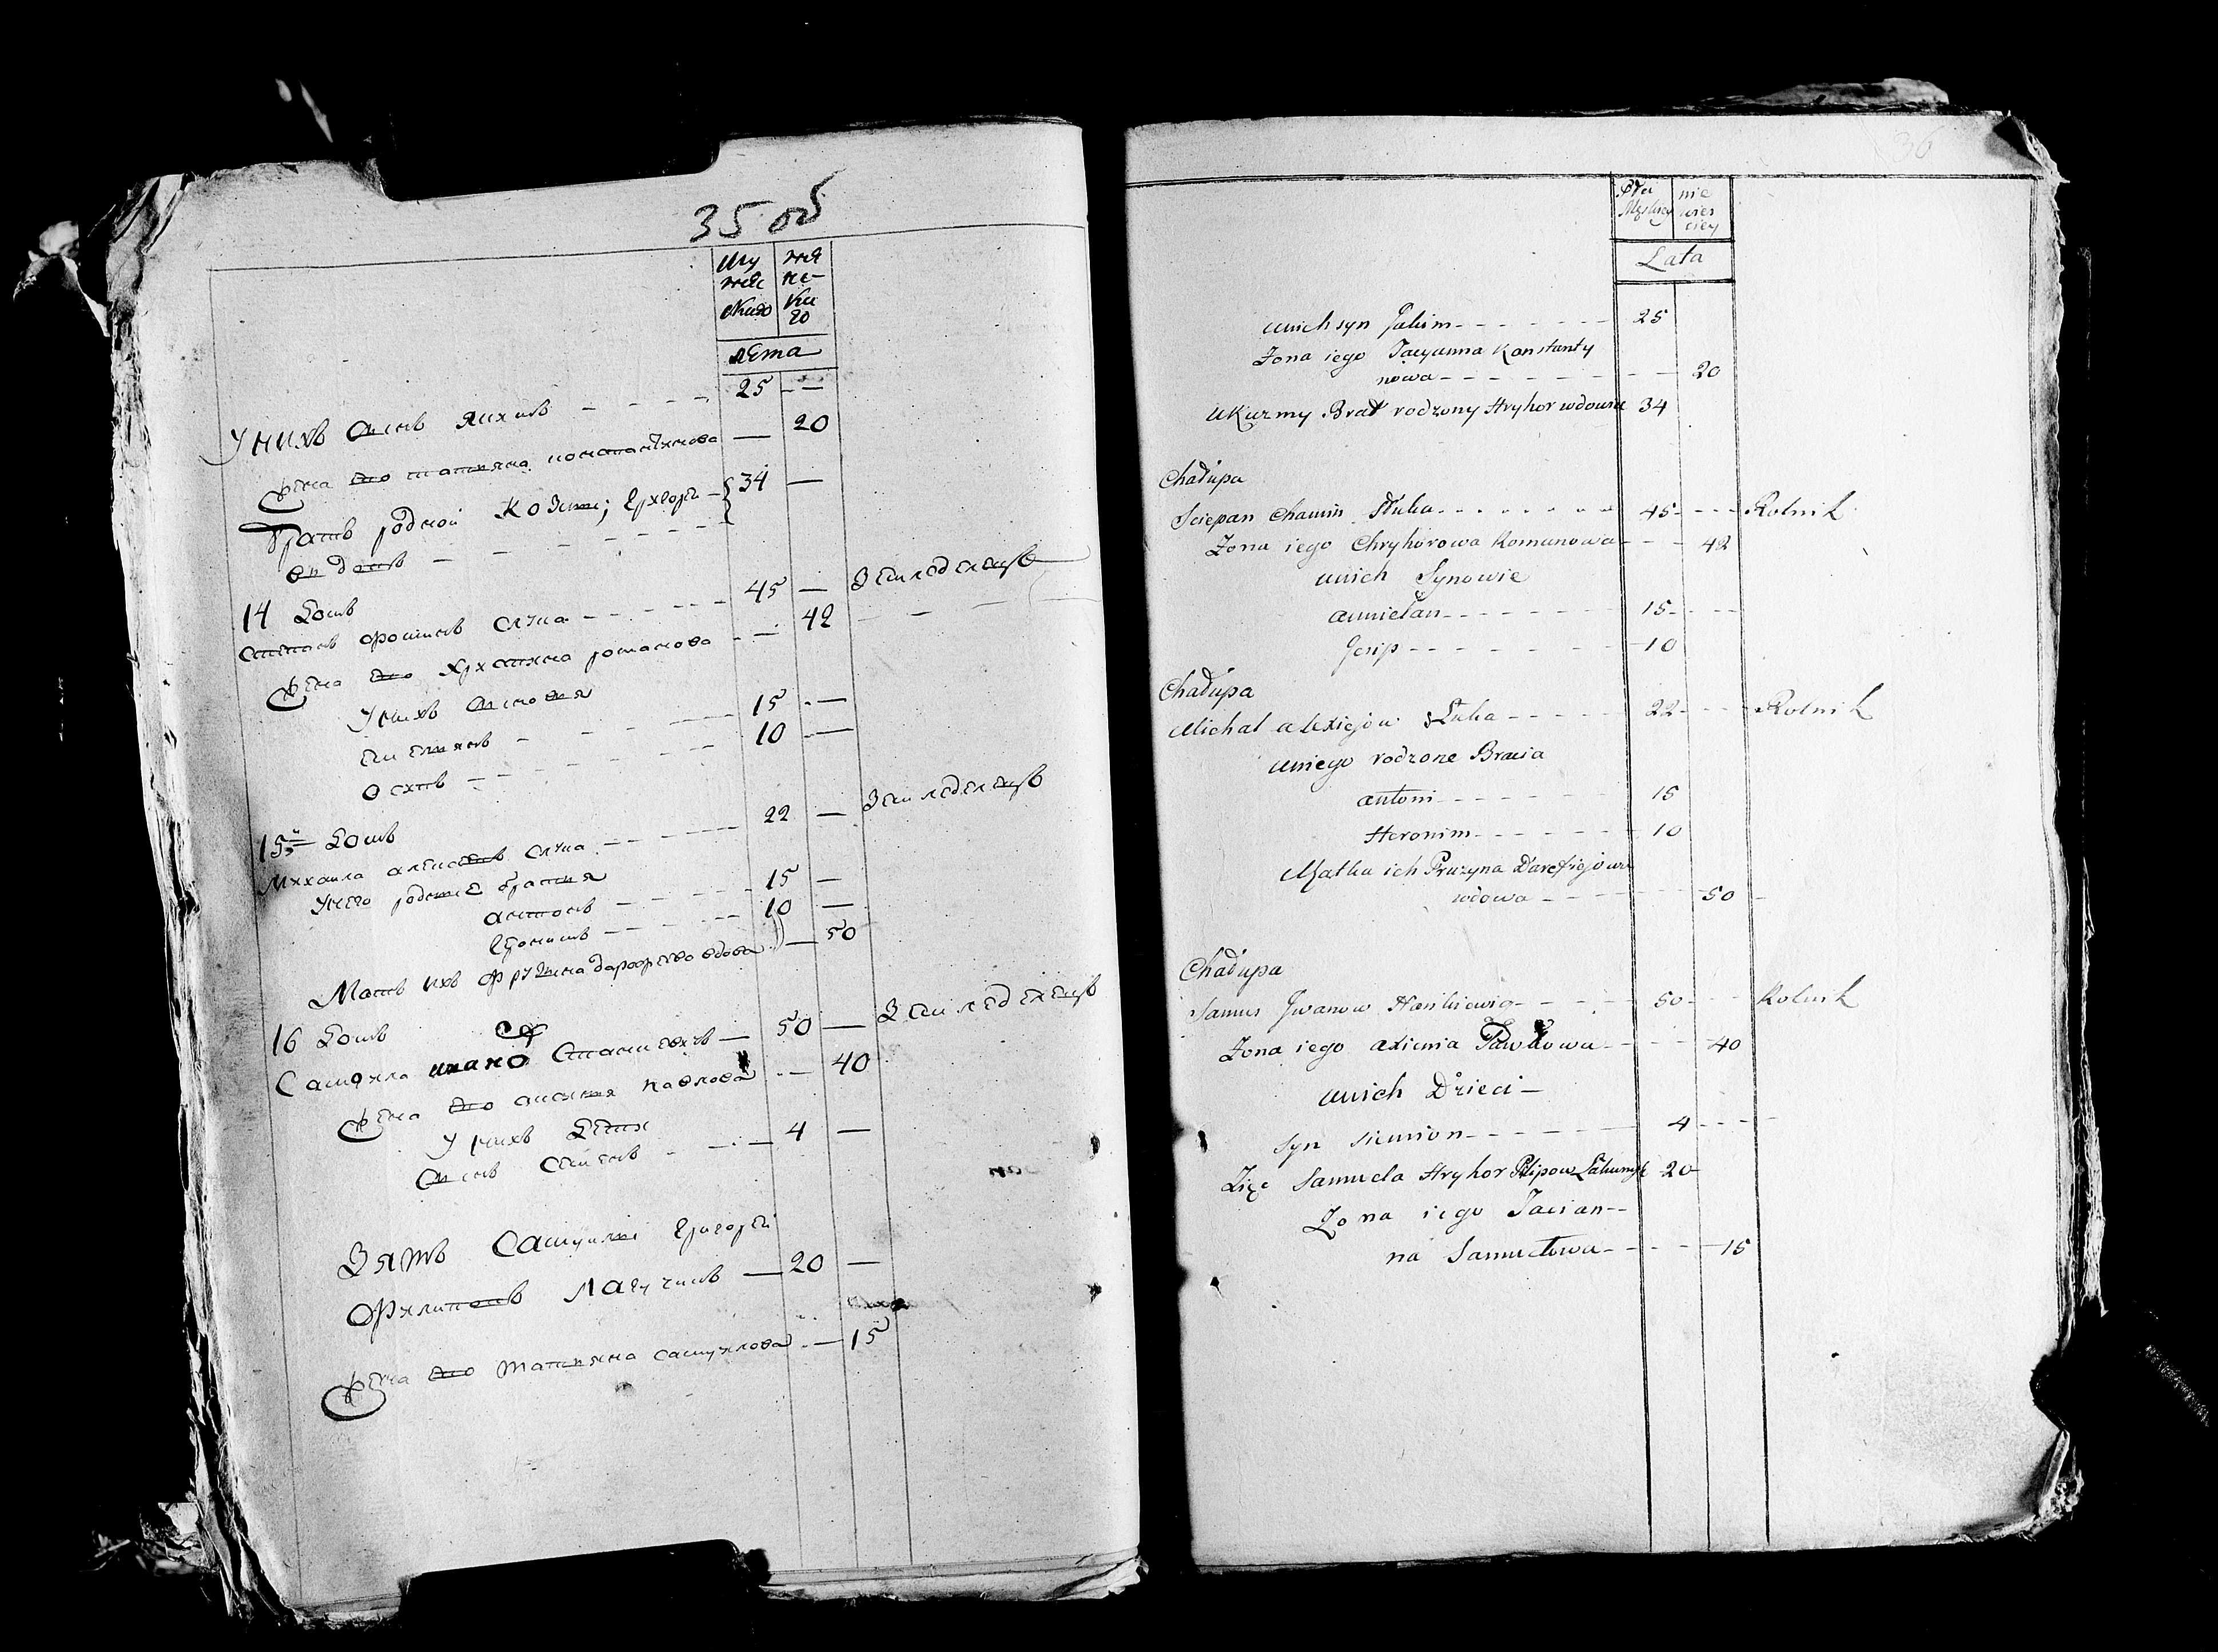 35 об
Му
жес
каго
же
нс-
ка
го
лета
Унихъ сынъ Якимъ 25
Жена его татьяна констант͡инова 20
братъ родной Козмы; Григорь 34
вдовъ
14 Домъ
Степанъ Фоминъ Слука 45 Земледелецъ
Жена его Христина романова 42
Унихъ сыновья
Емельянъ 15
Осипъ 10
15й Домъ
Михаила алексеевъ Слука 22 Земледелецъ
Унего родные братья
антонъ 15
Еронимъ 10
Мать ихъ Фрузына дарофеева вдова 50
16 Домъ
Самуила ивановъ 50 Земледелецъ
Жена его аксинья павлова 40
Унихъ Дети
Сынъ Семенъ 4
Зять Самуилы Григорей
Филиповъ Лагучикъ 20
Жена его татьяна самуилова 15
36
Płci
Męskiey
nie
wies
ciey
Lata
unich syn Jakim 25
Żona iego Tacyanna Konstanty
nowa 20
u Kuzmy Brat rodzony Hryhor wdowiec 34
Chałupa
Sciepan Chamin Słuka 45 Rolnik
Żona iego Chryhorowa Romanowa 42
unich Synowie
amielan 15
Josip 10
Chałupa
Michał alexiejow Słuka 22 Rolnik
uniego rodzone Bracia
antoni 15
Heronim 10
Matka ich Pruzyna Darefiejowa
wdowa 50
Chałupa
Samus Jwanow 50 Rolnik
Żona iego axinia Pawłowa 40
unich Dzieci
syn siemion 4
Zięc Samuela Hryhor Pilipow 20
Żona iego Tacian
na Samuelowa 15